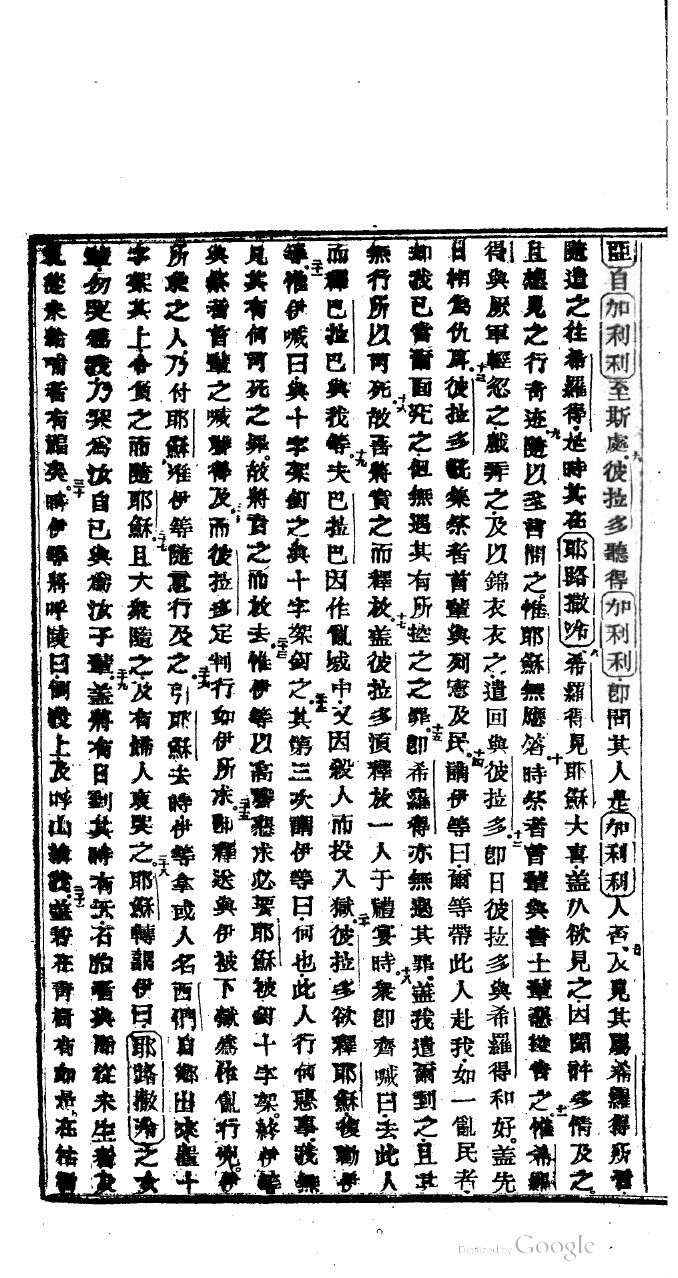 亞自加利利至斯處彼拉多聽得加利利即問其人是加利利人否及見其屬希羅得所管
隨遣之往希羅得是時其在耶路撒冷希羅得見耶穌大喜蓋久欲見之因聞許多情及之
且想見之行奇迹隨以多言問之惟耶穌無應答時祭者首輩與書士輩惡控告之惟希羅
得與厥軍輕忽之戲弄之及以錦衣衣之遣回與彼拉多即日彼拉多與希羅得和好蓋先
日相為仇耳彼拉多既集祭者首輩與列憲及民謂伊等曰爾等帶此人赴我如一亂民者
却我已當爾面究之但無遇其有所控之之罪即希羅得亦無遇其罪蓋我遣爾到之且其
無行所以致死故吾將責之而釋放蓋彼拉多須釋放一人于禮宴時衆即齊喊曰去此人
而釋巴拉巴與我等夫巴拉巴因作亂城中又因殺人而投入獄彼拉多欲釋耶穌復勸伊
等惟伊喊曰與十字架釘之與十字架釘之其第三次謂伊等曰何也此人行何惡事我無
見其有何可死之罪故將責之而放去惟伊等以高聲懇求必要耶穌被釘十字架終伊等
與祭者首輩之喊聲得及而彼拉多定判行如伊所求即釋送與伊被下獄為作亂行兇伊
所求之人乃付耶穌準伊等隨意行及之引耶穌去時伊等拿或人名西們自鄉出來置十
字架其上令負之而隨耶穌且大衆隨之及有婦人哀哭之耶穌轉謂伊曰耶路撒冷之女
輩勿哭為我乃哭為汝自己與為汝子輩蓋將有日到其時有云石胎者與
從未
哺者有福矣時伊等將呼陵曰倒我上及呼山掩我蓋若在青樹有如是在枯
Digitized by Google